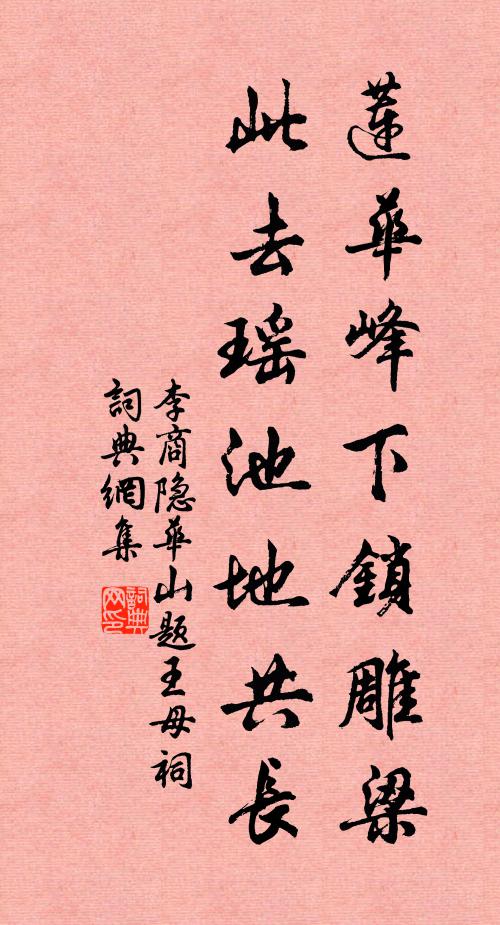 蓮華峰下鎖雕梁
此去瑶池地共長
李商隐華山题王母祠
詞典網集
詞典網印